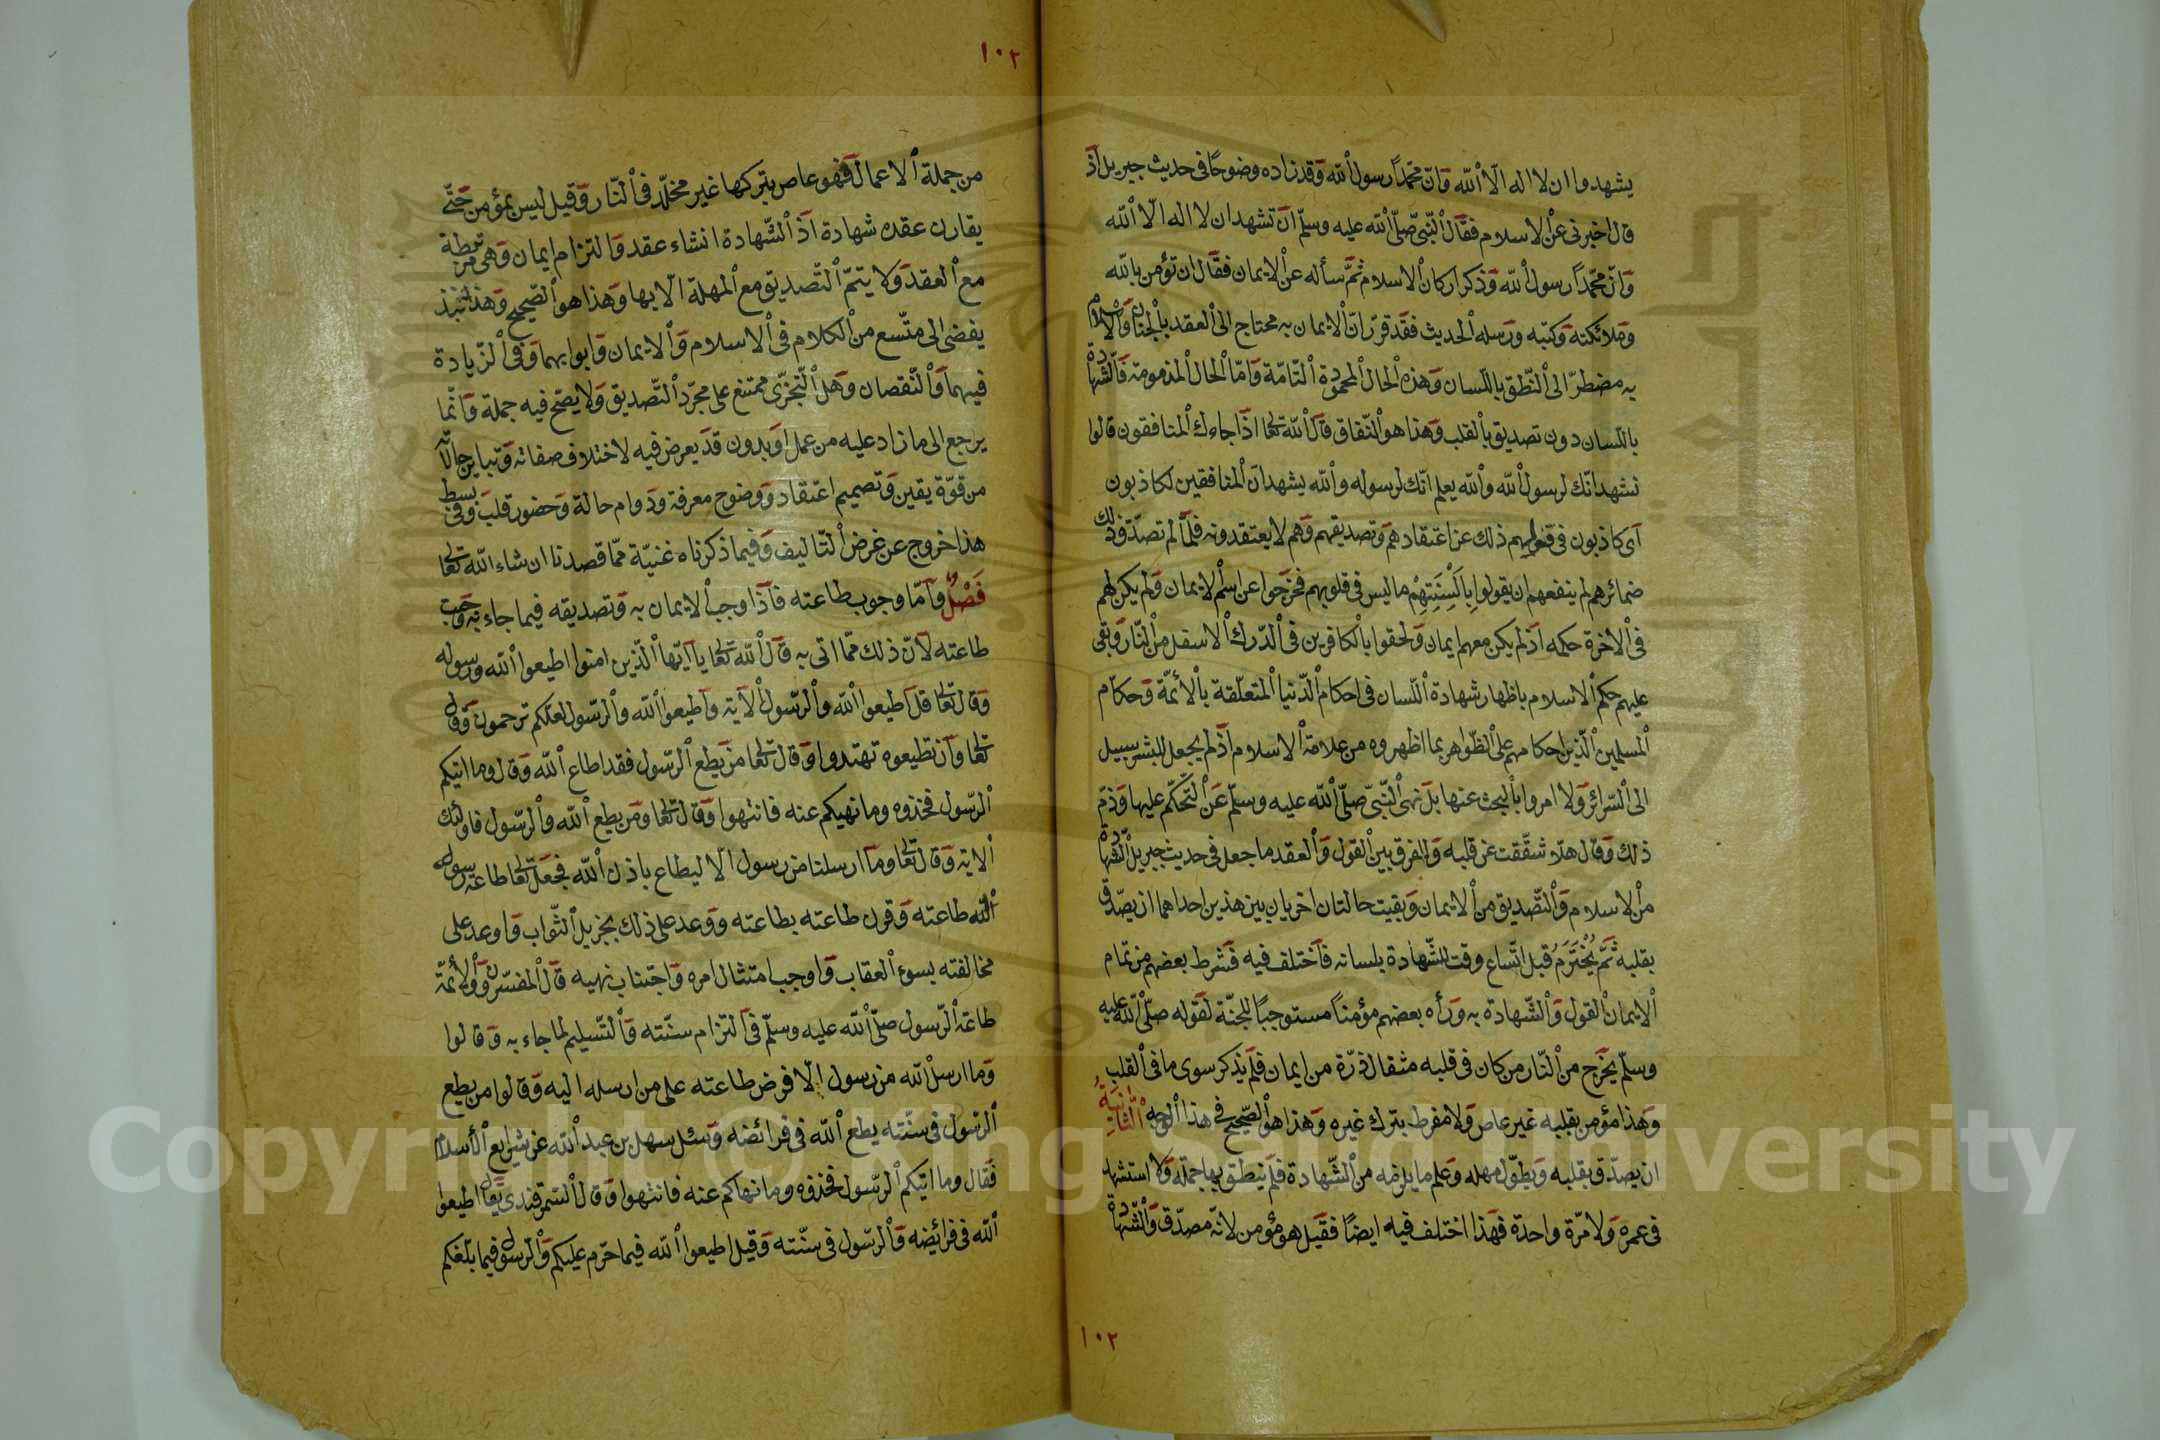 يشهدوا ان لا اله الّا الله وانّ محمّداً رسول الله وقد زاده وضوحًا فى حديث جبريل اذ
قال اخبرنى عن الاسلام فقال النّبىّ صلّى الله عليه وسلّم ان تشهد ان لا اله الّا الله
وانّ محمّداً رسول الله وذكر اركان الاسلام ثمّ سأله عن الايمان فقال ان تؤمن بالله
وملائكته وكتبه ورسله الحديث فقد قرّر انّ الايمان به محتاج الى العقد بالجنان والاسلام
به مضطرّ الى النّطق باللّسان وهذه الحال المحمودة التّامّة وامّا الحال المذمومة فالشّهادة
باللّسان دون تصديق بالقلب وهذا هو النّفاق قال الله تعالى اذا جاءك المنافقون قالوا
نشهد انّك لرسول الله والله يعلم انّك لرسوله والله يشهد انّ المنافقين لكاذبون
اى كاذبون فى قولهم ذلك عن اعتقادهم وتصديقهم وهم لا يعتقدونه فلمّا لم تصدّق ذلك
ضمائرهم لم ينفعهم ان يقولوا بِاَلْسِنَتِهِمْ ما ليس فى قلوبهم فخرجوا عن اسم الايمان ولم يكن لهم
فى الاخرة حكمه اذ لم يكن معهم ايمان ولحقوا بالكافرين فى الدّرك الاسفل من النّار وبقى
عليهم حكم الاسلام باظهار شهادة اللّسان فى احكام الدّنيا المتعلّقة بالأئمّة وحكّام
المسلمين الّذين احكامهم على الظّواهر بما اظهروه من علامة الاسلام اذ لم يجعل للبشر سبيل
الى السّرائر ولا امروا بالبحث عنها بل نهى النّبىّ صلّى الله عليه وسلّم عن التّحكّم عليها وذمّ
ذلك وقال هلّا شقّقت عن قلبه والفرق بين القول والعقد ما جعل فى حديث جبريل الشّهادة
من الاسلام والتّصديق من الايمان وبقيت حالتان اخريان بين هذين احداهما ان يصدّق
بقلبه ثمّ يُخْتَرَمُ قبل اتّساع وقت للشّهادة بلسانه فاختلف فيه فشرط بعضهم من تمام
الايمان القول والشّهادة به ورأه بعضهم مؤمنًا مستوجبًا للجنّة لقوله صلّى الله عليه
وسلّم يخرج من النّار من كان فى قلبه مثقال ذرّة من ايمان فلم يذكر سوى ما فى القلب
وهذا مؤمن بقلبه غير عاص ولا مفرط بترك غيره وهذا هو الصّحيح فى هذا الوجه الثّانية
ان يصدّق بقلبه ويطوّل مهله وعلم ما يلزمه من الشّهادة فلم ينطق بها جملة ولا استشهد
فى عمره ولا مرّة واحدة فهذا اختلف فيه ايضًا فقيل هو مؤمن لانّه مصدّق والشّهادة
١٠٢
١٠٢
من جملة الاعمال فهو عاص بتركها غير مخلّد فى النّار وقيل ليس بمؤمن حتّى
يقارن عقده شهادة اذ الشّهادة انشاء عقد والتزام ايمان وهى مرتبطة
مع العقد ولا يتمّ التّصديق مع المهلة الّا بها وهذا هو الصّحيح وهذا نبذ
يفضى الى متّسع من الكلام فى الاسلام والايمان وابوابهما وفى الزّيادة
فيهما والنّقصان وهل التّجزّى ممتنع على مجرّد التّصديق ولا يصحّ فيه جملة وانّما
يرجع الى ما زاد عليه من عمل او بدون قد يعرض فيه لاختلاف صفاته وتباين حالاته
من قوّة يقين وتصميم اعتقاد ووضوح معرفة ودوام حالة وحضور قلب وفى بسط
هذا خروج عن غرض التاليف وفيما ذكرناه غنيّة ممّا قصدنا ان شاء الله تعالى
فَصْلٌ وامّا وجوب طاعته فاذا وجب الايمان به وتصديقه فيما جاء به وجبت
طاعته لانّ ذلك ممّا اتى به قال الله تعالى يا ايّها الّذين امنوا اطيعوا الله ورسوله
وقال تعالى قل اطيعوا الله والرّسول الآية واطيعوا الله والرّسول لعلّكم ترحمون وقال
تعالى وان تطيعوه تهتدوا وقال تعالى من يطع الرّسول فقد اطاع الله وقال وما اتيكم
الرّسول فخذوه وما نهيكم عنه فانتهوا وقال تعالى ومن يطع الله والرّسول فاولئك
الاية وقال تعالى وما ارسلنا من رسول الّا ليطاع باذن الله فجعل تعالى طاعة رسوله
الله طاعته وقرن طاعته بطاعته ووعد على ذلك بجزيل الثّواب واوعد على
مخالفته بسوء العقاب واوجب امتثال امره واجتناب نهيه قال المفسّرون والأئمّة
طاعة الرّسول صلّى الله عليه وسلّم فى التزام سنّته والتّسليم لما جاء به وقالوا
وما ارسل الله من رسول الّا فرض طاعته على من ارسله اليه وقالوا من يطع
الرّسول فى سنّته يطع الله فى فرائضه وسئل سهل بن عبد الله عن شرايع الأسلام
فقال وما اتيكم الرّسول فخذوه وما نهاكم عنه فانتهوا وقال السّمرقندى يقال اطيعوا
الله فى فرائضه والرّسول فى سنّته وقيل اطيعوا الله فيما حرّم عليكم والرّسول فيما بلّغكم
Copyright © King Saud University